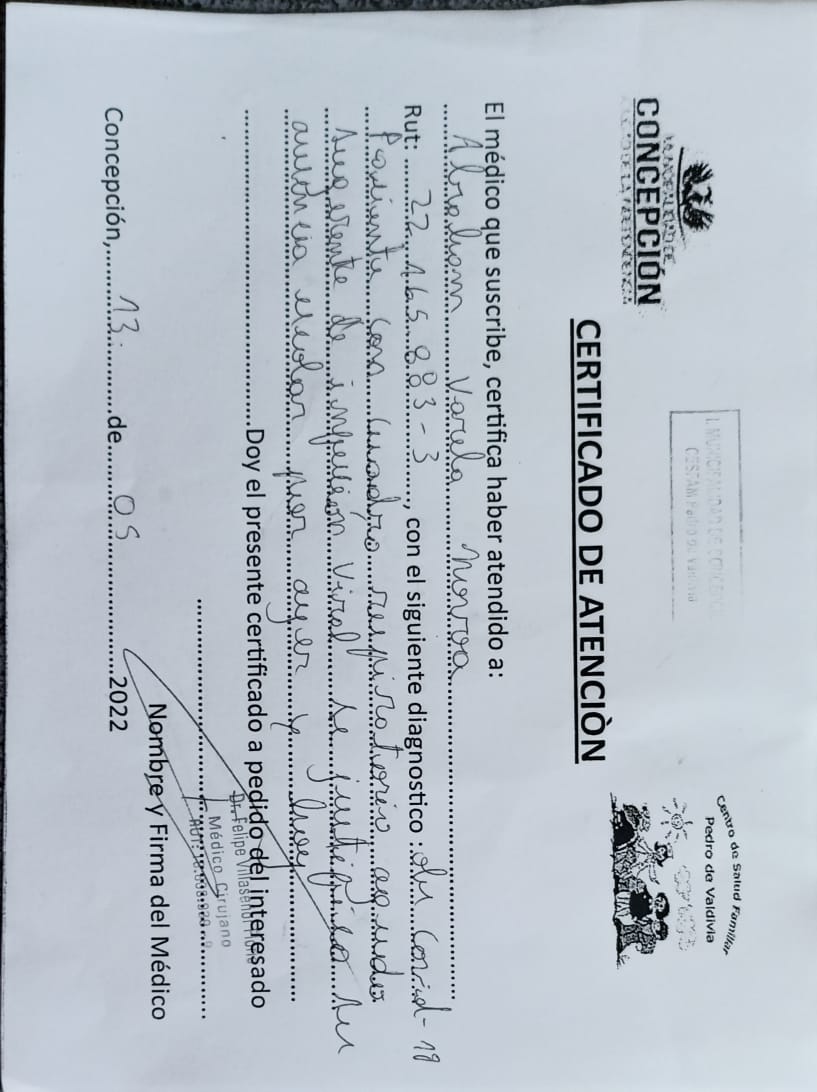 MUNICIPALIDAD DE
CONCEPCIÓN
I. MUNICIPALIDAD DE CONCEPCION
CESFAM Pedro de Valdivia
Centro de Salud Familiar
Pedro de Valdivia
CERTIFICADO DE ATENCIÒN
El médico que suscribe, certifica haber atendido a:
Abraham Varela Novoa
Rut: 22.165.883-3, con el siguiente diagnostico : Covid-19
Paciente con cuadro respiratorio agudo
sugerente de infección viral se justifica su
ausencia escolar por ayer y hoy
Doy el presente certificado a pedido del interesado
Dr. Felipe
Médico Cirujano
RUT:
Nombre y Firma del Médico
Concepción, 13. de 05 2022